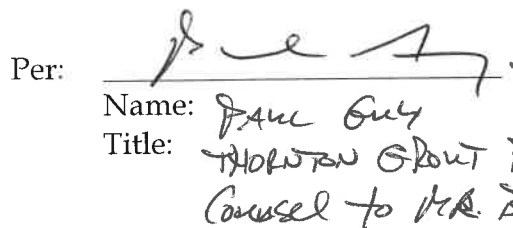 Per:
Name: PAUL GUY
Title: THORNTON GROUT
Counsel to MR.